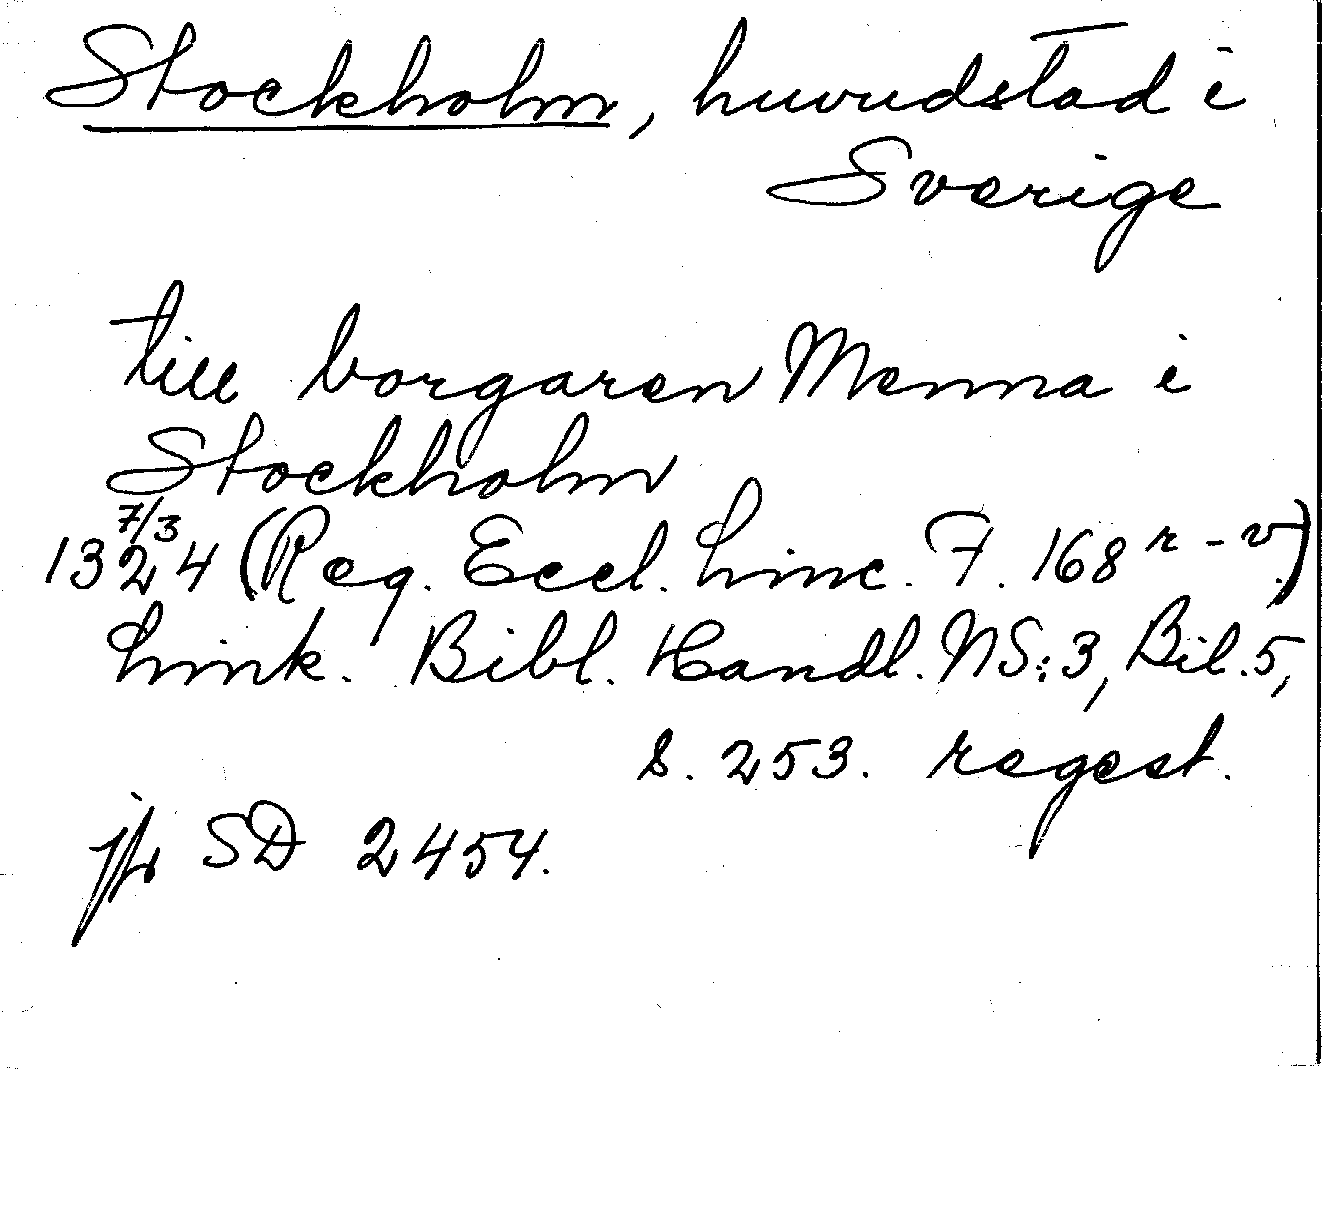 Stockholm, huvudstad i
Sverige
till borgaren Menna i
Stockholm
7/3
1324 (Reg. Eccl. Linc. F. 168 r-v)
Link. Bibl. Handl. NS:3, Bil. 5,
s. 253. regest.
jfr SD 2454.